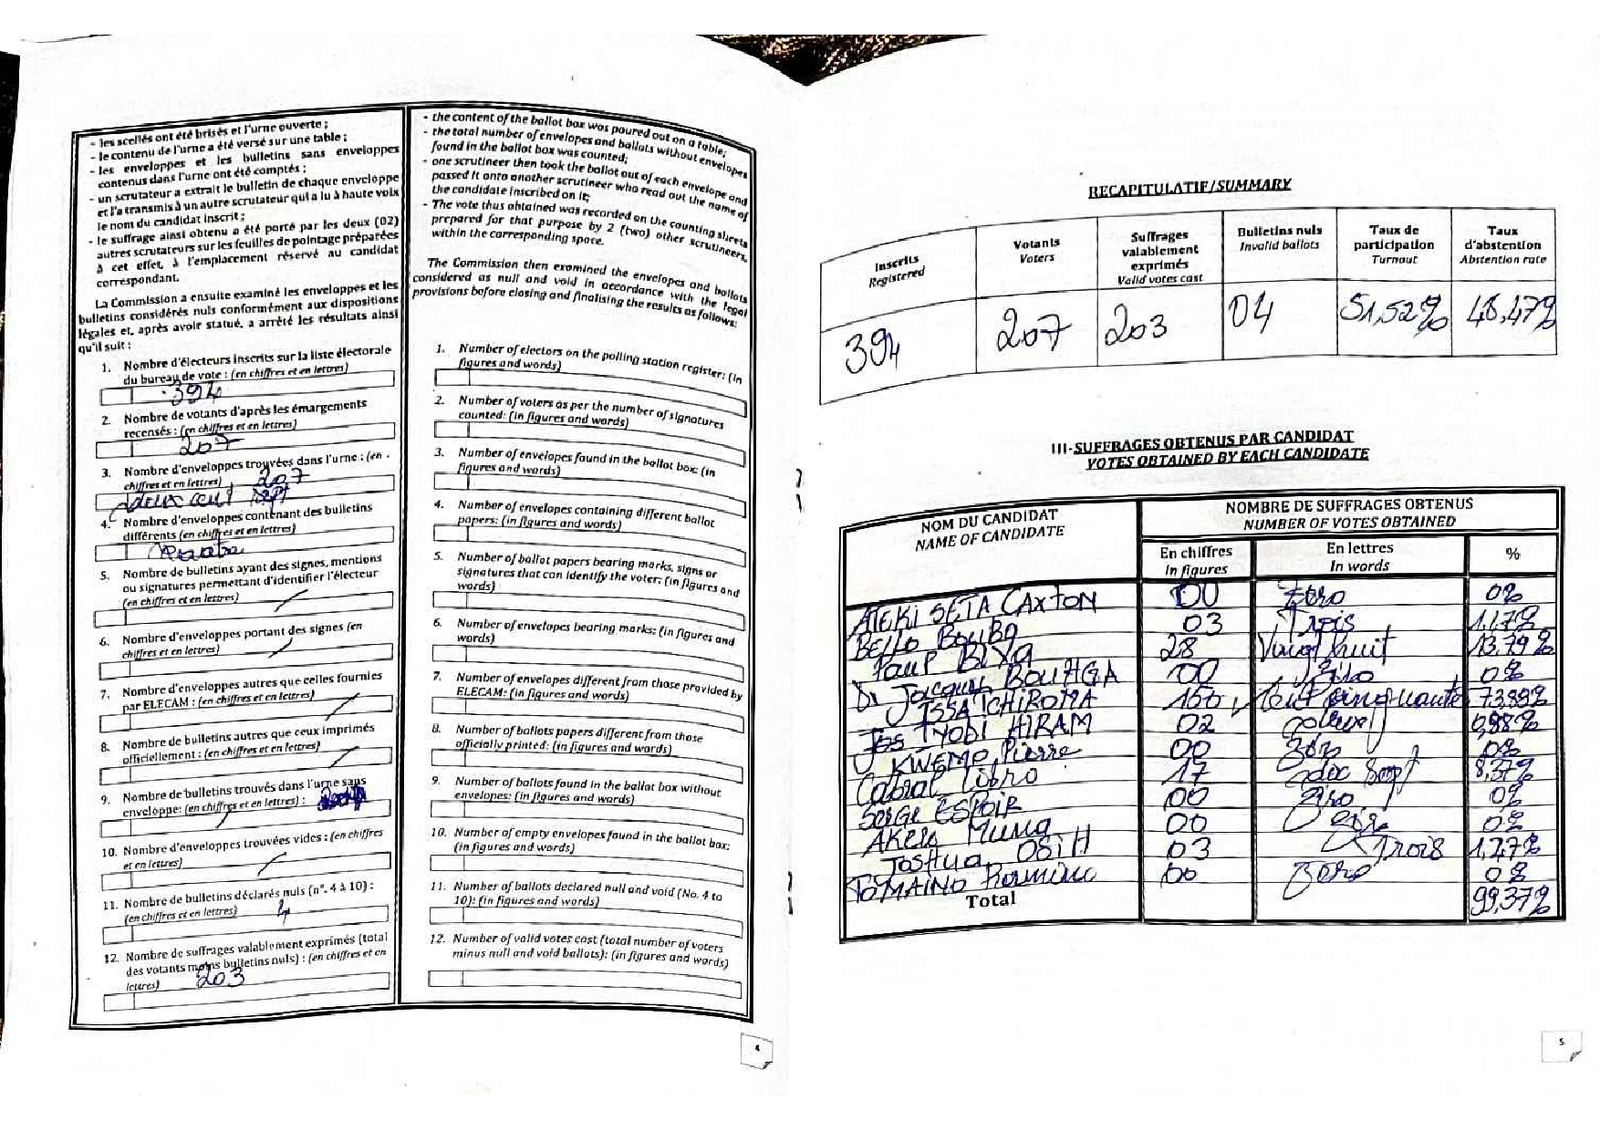 - les scellés ont été brisés et l'urne ouverte ;
- le contenu de l'urne a été versé sur une table ;
- les enveloppes et les bulletins sans enveloppes
contenus dans l'urne ont été comptés ;
- un scrutateur a extrait le bulletin de chaque enveloppe
et l'a transmis à un autre scrutateur qui a lu à haute voix
le nom du candidat inscrit ;
- le suffrage ainsi obtenu a été porté par les deux (02)
autres scrutateurs sur les feuilles de pointage préparées
à cet effet, à l'emplacement réservé au candidat
correspondant.
La Commission a ensuite examiné les enveloppes et les
bulletins considérés nuls conformément aux dispositions
légales et, après avoir statué, a arrêté les résultats ainsi
qu'il suit :
1. Nombre d'électeurs inscrits sur la liste électorale
du bureau de vote : (en chiffres et en lettres)
394
2. Nombre de votants d'après les émargements
recensés : (en chiffres et en lettres)
207
3. Nombre d'enveloppes trouvées dans l'urne : (en
chiffres et en lettres) 207
deux cent sept
4. Nombre d'enveloppes contenant des bulletins
différents (en chiffres et en lettres)
5. Nombre de bulletins ayant des signes, mentions
ou signatures permettant d'identifier l'électeur
(en chiffres et en lettres)
6. Nombre d'enveloppes portant des signes (en
chiffres et en lettres)
7. Nombre d'enveloppes autres que celles fournies
par ELECAM : (en chiffres et en lettres)
8. Nombre de bulletins autres que ceux imprimés
officiellement : (en chiffres et en lettres)
9. Nombre de bulletins trouvés dans l'urne sans
enveloppe: (en chiffres et en lettres) :
10. Nombre d'enveloppes trouvées vides : (en chiffres
et en lettres)
11. Nombre de bulletins déclarés nuls (n°. 4 à 10) :
(en chiffres et en lettres) 4
12. Nombre de suffrages valablement exprimés (total
des votants moins bulletins nuls) : (en chiffres et en
lettres) 203
- the content of the ballot box was poured out on a table;
- the total number of envelopes and ballots without envelopes
found in the ballot box was counted;
- one scrutineer then took the ballot out of each envelope and
passed it onto another scrutineer who read out the name of
the candidate inscribed on it;
- The vote thus obtained was recorded on the counting sheets
prepared for that purpose by 2 (two) other scrutineers,
within the corresponding space.
The Commission then examined the envelopes and ballots
considered as null and void in accordance with the legal
provisions before closing and finalising the results as follows:
1. Number of electors on the polling station register: (in
figures and words)
2. Number of voters as per the number of signatures
counted: (in figures and words)
3. Number of envelopes found in the ballot box: (in
figures and words)
4. Number of envelopes containing different ballot
papers: (in figures and words)
5. Number of ballot papers bearing marks, signs or
signatures that can identify the voter: (in figures and
words)
6. Number of envelopes bearing marks: (in figures and
words)
7. Number of envelopes different from those provided by
ELECAM: (in figures and words)
8. Number of ballots papers different from those
officially printed: (in figures and words)
9. Number of ballots found in the ballot box without
envelopes: (in figures and words)
10. Number of empty envelopes found in the ballot box:
(in figures and words)
11. Number of ballots declared null and void (No. 4 to
10): (in figures and words)
12. Number of valid votes cast (total number of voters
minus null and void ballots): (in figures and words)
4
RECAPITULATIF/SUMMARY
Inscrits
Registered
Votants
Voters
Suffrages
valablement
exprimés
Valid votes cast
Bulletins nuls
Invalid ballots
Taux de
participation
Turnout
Taux
d'abstention
Abstention rate
394 207 203 04 51,52% 48,47%
III-SUFFRAGES OBTENUS PAR CANDIDAT
VOTES OBTAINED BY EACH CANDIDATE
NOM DU CANDIDAT
NAME OF CANDIDATE
NOMBRE DE SUFFRAGES OBTENUS
NUMBER OF VOTES OBTAINED
En chiffres
In figures
En lettres
In words
%
ATEKI SETA CAXTON 00 Zéro 0%
BELLO BOUBA 03 Trois 1,17%
PAUL BIYA 28 Vingt huit 13,79%
Dr Jacques BOUHGA 00 Zéro 0%
ISSA TCHIROMA 150 Cent cinquante 73,89%
IYODI HIRAM 02 deux 0,98%
KWEMO Pierre 00 Zéro 0%
Cabral Libro 17 dix Sept 8,37%
SERGE ESPOIR 00 Zéro 0%
AKERE Muna 00 Zéro 0%
Joshua OSIH 03 Trois 1,47%
TOMAINO 00 Zéro 0%
Total 99,37%
5